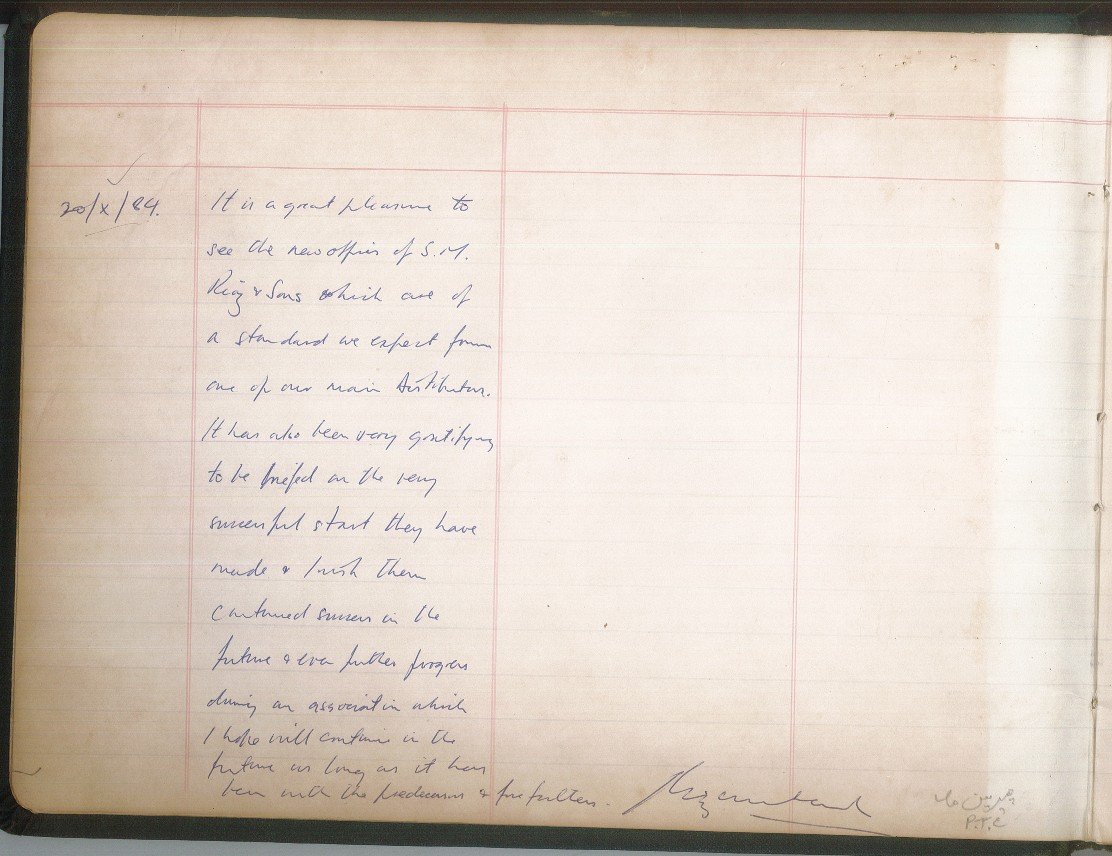 20/X/84.
It is a great pleasure to
see the new offices of S.M.
Riaz & Sons which are of
a standard we expect from
one of our main distributors.
It has also been very gratifying
to be briefed on the very
successful start they have
made & I wish them
continued success in the
future & even further progress
during an association which
I hope will continue in the
future as long as it has
been with the predecessors & forefathers.
P.T.C